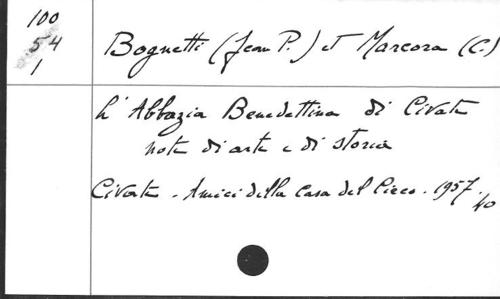 100
54
1
Bognetti (Jean P.) et Marcora (C.)
L'Abbazia Benedettina di Civate
note di arte e di storia
Civate - Amici della Casa del Cieco. 1957.
40